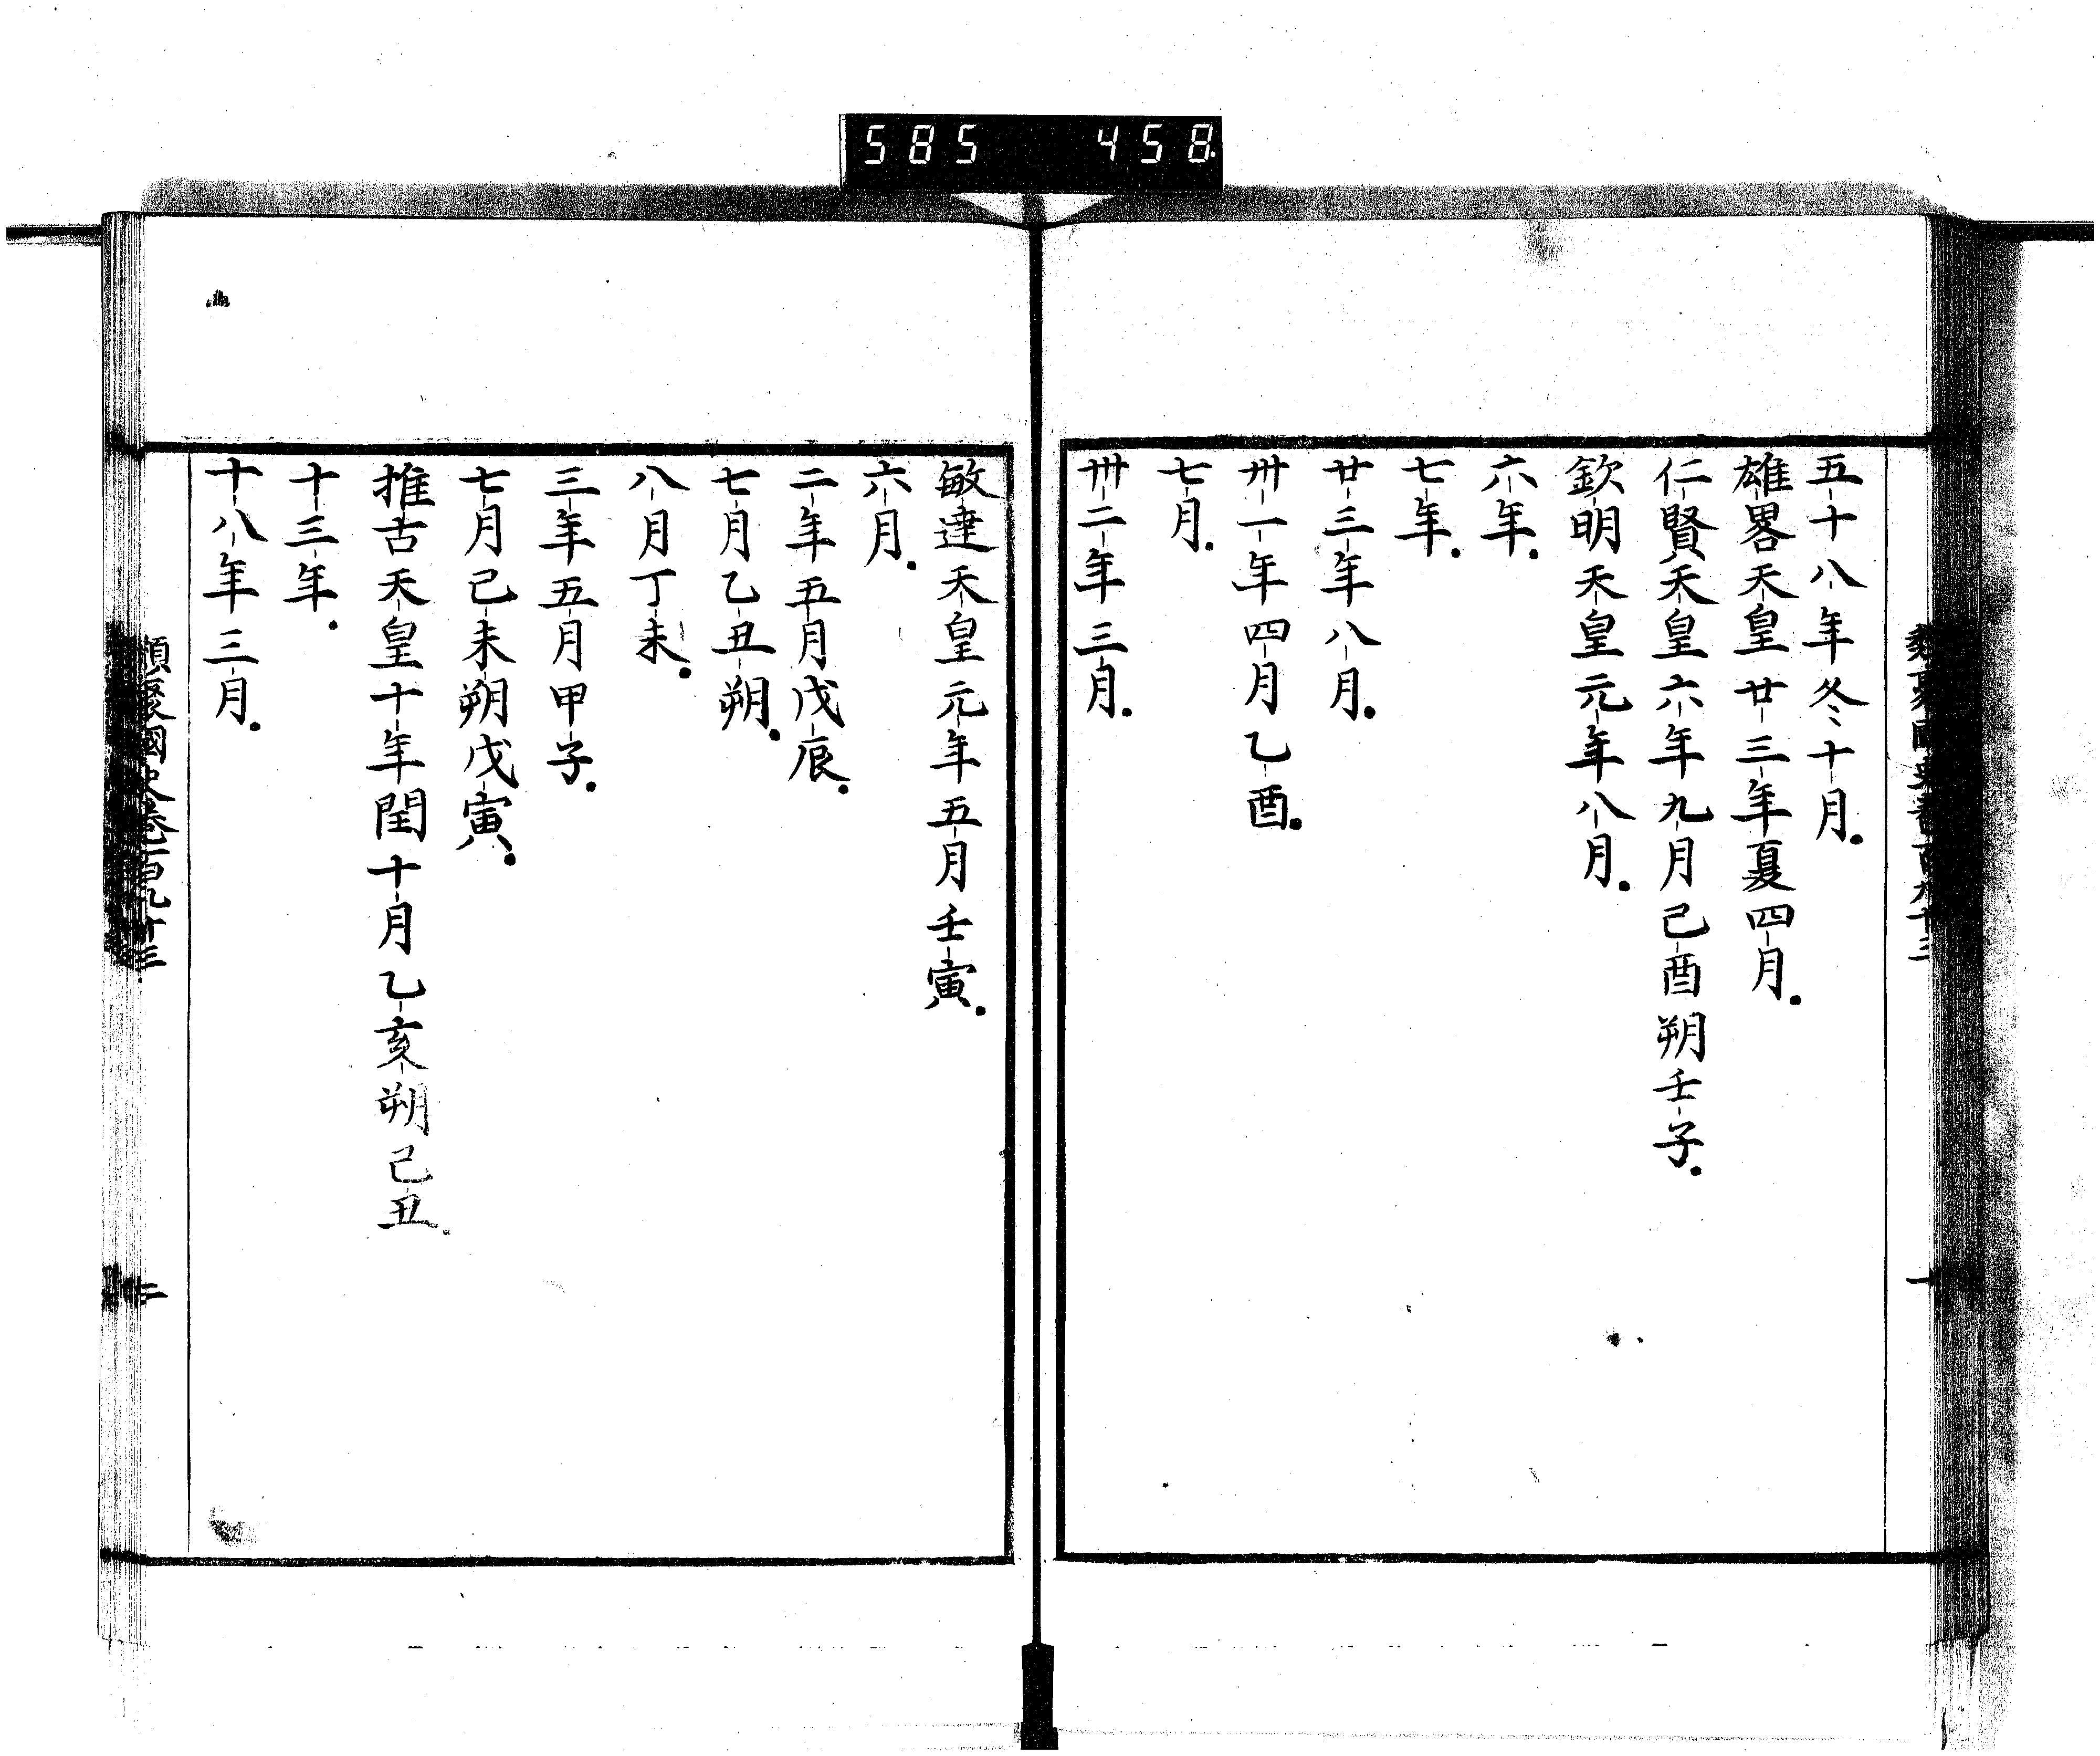 585 458
五十八年冬十月.
雄畧天皇廿三年夏四月.
仁賢天皇六年九月己酉朔壬子.
欽明天皇元年八月.
六年.
七年.
廿三年八月.
卅一年四月乙酉.
七月.
卅二年三月.
敏達天皇元年五月壬寅.
六月.
二年五月戊辰.
七月乙丑朔.
八月丁未.
三年五月甲子.
七月己未朔戊寅.
推古天皇十年閏十月乙亥朔己丑.
十三年.
十八年三月.
類聚國史卷百九十三
二